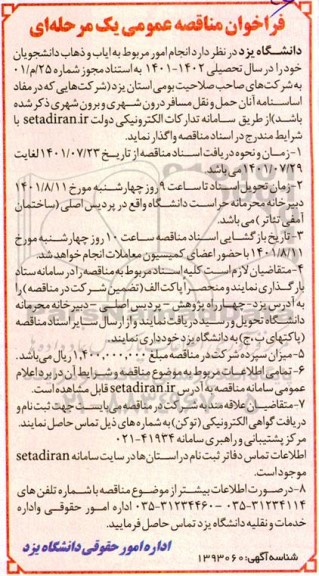 فراخوان مناقصه عمومی یک مرحله‌ای
دانشگاه یزد در نظر دارد انجام امور مربوط به ایاب و ذهاب دانشجویان
خود را در سال تحصیلی ۱۴۰۲-۱۴۰۱ به استناد مجوز شماره ۲۵/م/۰۱
به شرکت‌های صاحب صلاحیت بومی استان یزد (شرکت‌هایی که در مفاد
اساسنامه آنان حمل و نقل مسافر درون شهری و برون شهری ذکر شده
باشد) از طریق سامانه تدارکات الکترونیکی دولت setadiran.ir با
شرایط مندرج در اسناد مناقصه واگذار نماید.
۱- زمان و نحوه دریافت اسناد مناقصه از تاریخ ۱۴۰۱/۰۷/۲۳ لغایت
۱۴۰۱/۰۷/۲۹ می باشد.
۲- زمان تحویل اسناد تا ساعت ۹ روز چهارشنبه مورخ ۱۴۰۱/۸/۱۱
دبیرخانه محرمانه حراست دانشگاه واقع در پردیس اصلی (ساختمان
آمفی تئاتر) می باشد.
۳- تاریخ بازگشایی اسناد مناقصه ساعت ۱۰ روز چهارشنبه مورخ
۱۴۰۱/۸/۱۱ با حضور اعضای کمیسیون معاملات انجام خواهد شد.
۴- متقاضیان لازم است کلیه اسناد مربوط به مناقصه را در سامانه ستاد
بارگذاری نمایند و منحصراً پاکت الف (تضمین شرکت در مناقصه) را
به آدرس یزد- چهار راه پژوهش - پردیس اصلی - دبیرخانه محرمانه
دانشگاه تحویل و رسید دریافت نمایند و از ارسال سایر اسناد مناقصه
(پاکتهای ب، ج) به دانشگاه یزد خودداری نمایند.
۵- میزان سپرده شرکت در مناقصه مبلغ ۱,۴۰۰,۰۰۰,۰۰۰ ریال می باشد.
۶- تمامی اطلاعات مربوط به موضوع مناقصه و شرایط آن در زیر اعلام
عمومی سامانه مناقصه به آدرس setadiran.ir قابل مشاهده است.
۷- متقاضیان علاقه مند به شرکت در مناقصه می بایست جهت ثبت نام و
دریافت گواهی الکترونیکی (توکن) به شماره های ذیل تماس حاصل نمایند.
مرکز پشتیبانی و راهبری سامانه ۴۱۹۳۴-۰۲۱
اطلاعات تماس دفاتر ثبت نام در استان‌ها در سایت سامانه setadiran
موجود است.
۸- در صورت اطلاعات بیشتر از موضوع مناقصه با شماره تلفن های
۰۳۵-۳۱۲۳۴۱۱۴ -۰۳۵-۳۱۲۳۴۴۶۰ اداره امور حقوقی و اداره
خدمات و نقلیه دانشگاه یزد تماس حاصل فرمایید.
اداره امور حقوقی دانشگاه یزد
شناسه آگهی: ۱۳۹۳۰۶۰